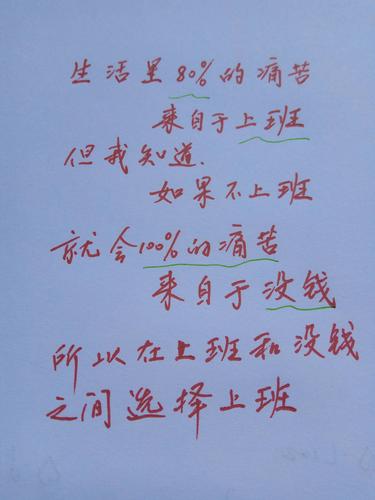 生活里80%的痛苦
来自于上班
但我知道.
如果不上班
就会100%的痛苦
来自于没钱
所以在上班和没钱
之间选择上班